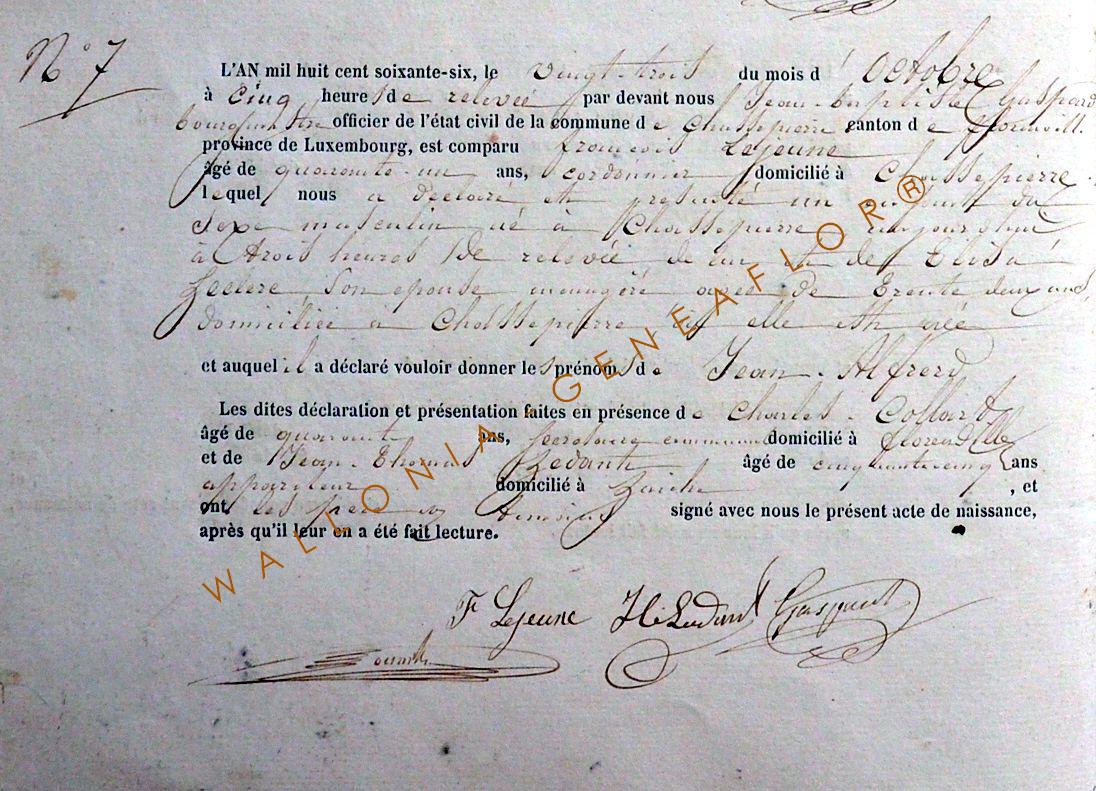 N° 7
L'AN mil huit cent soixante-six, le vingt-trois du mois d' Octobre
à cinq heures de relevée par devant nous Jean-Baptiste Gaspard
bourgmestre officier de l'état civil de la commune de Chassepierre canton de florenvill.
province de Luxembourg, est comparu françois Lejeune
âgé de quarante-un ans, cordonnier domicilié à Chassepierre
lequel nous a declaré et presenté un enfant du
sexe masculin né à Chassepierre aujourd'hui
à trois heures de relevée de lui et de Elisa
Leclere son epouse menagère agée de trente deux ans,
domiciliée à Chassepierre où elle est née
et auquel il a déclaré vouloir donner les prénoms de Jean-Alfrerd
Les dites déclaration et présentation faites en présence de Charles Collart
âgé de quarante ans, secretaire communal domicilié à florenville
et de Jean-Thomas âgé de cinquante-cinq ans
appariteur domicilié à , et
ont les père et temoins signé avec nous le présent acte de naissance,
après qu'il leur en a été fait lecture.
F Lejeune Gaspard
WALLONIA-GENEAFLOR®